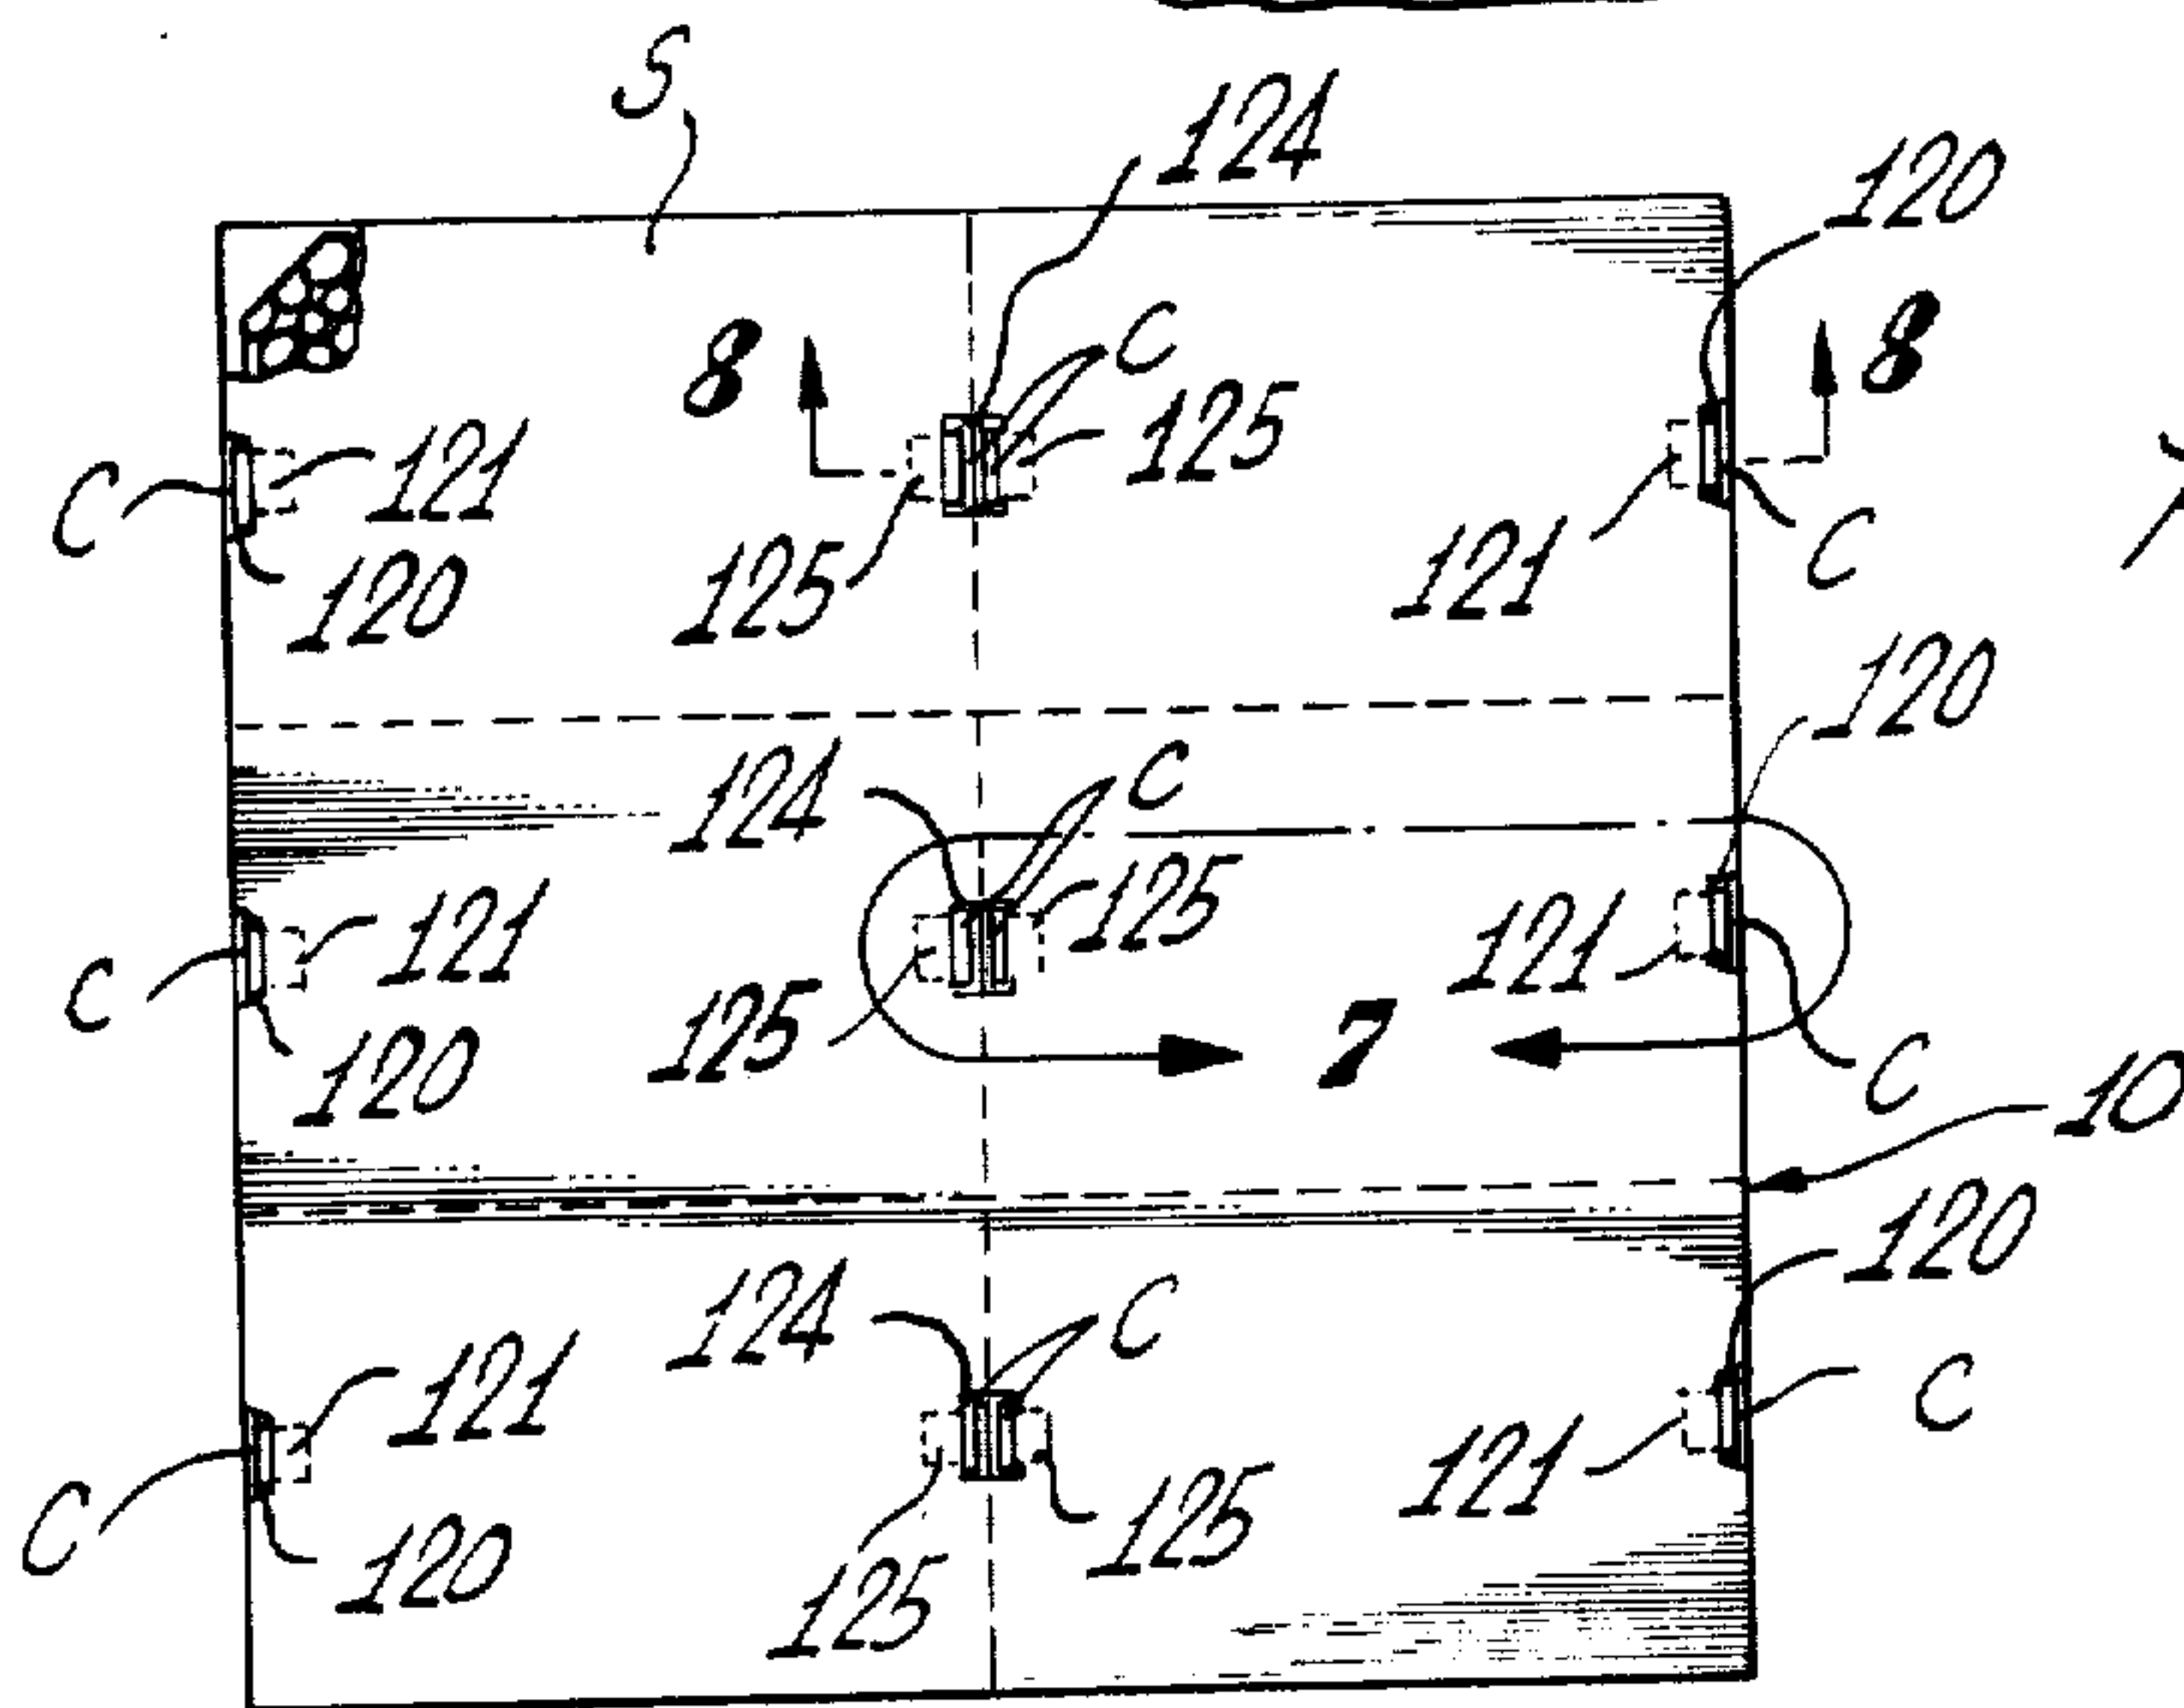 S
124
120
8 C 8
125
C 121
125 121 C
120
120
124 C
125
121 121
C 125 7
120 C
10
120
124 C
121 C
121
C 125
120 125